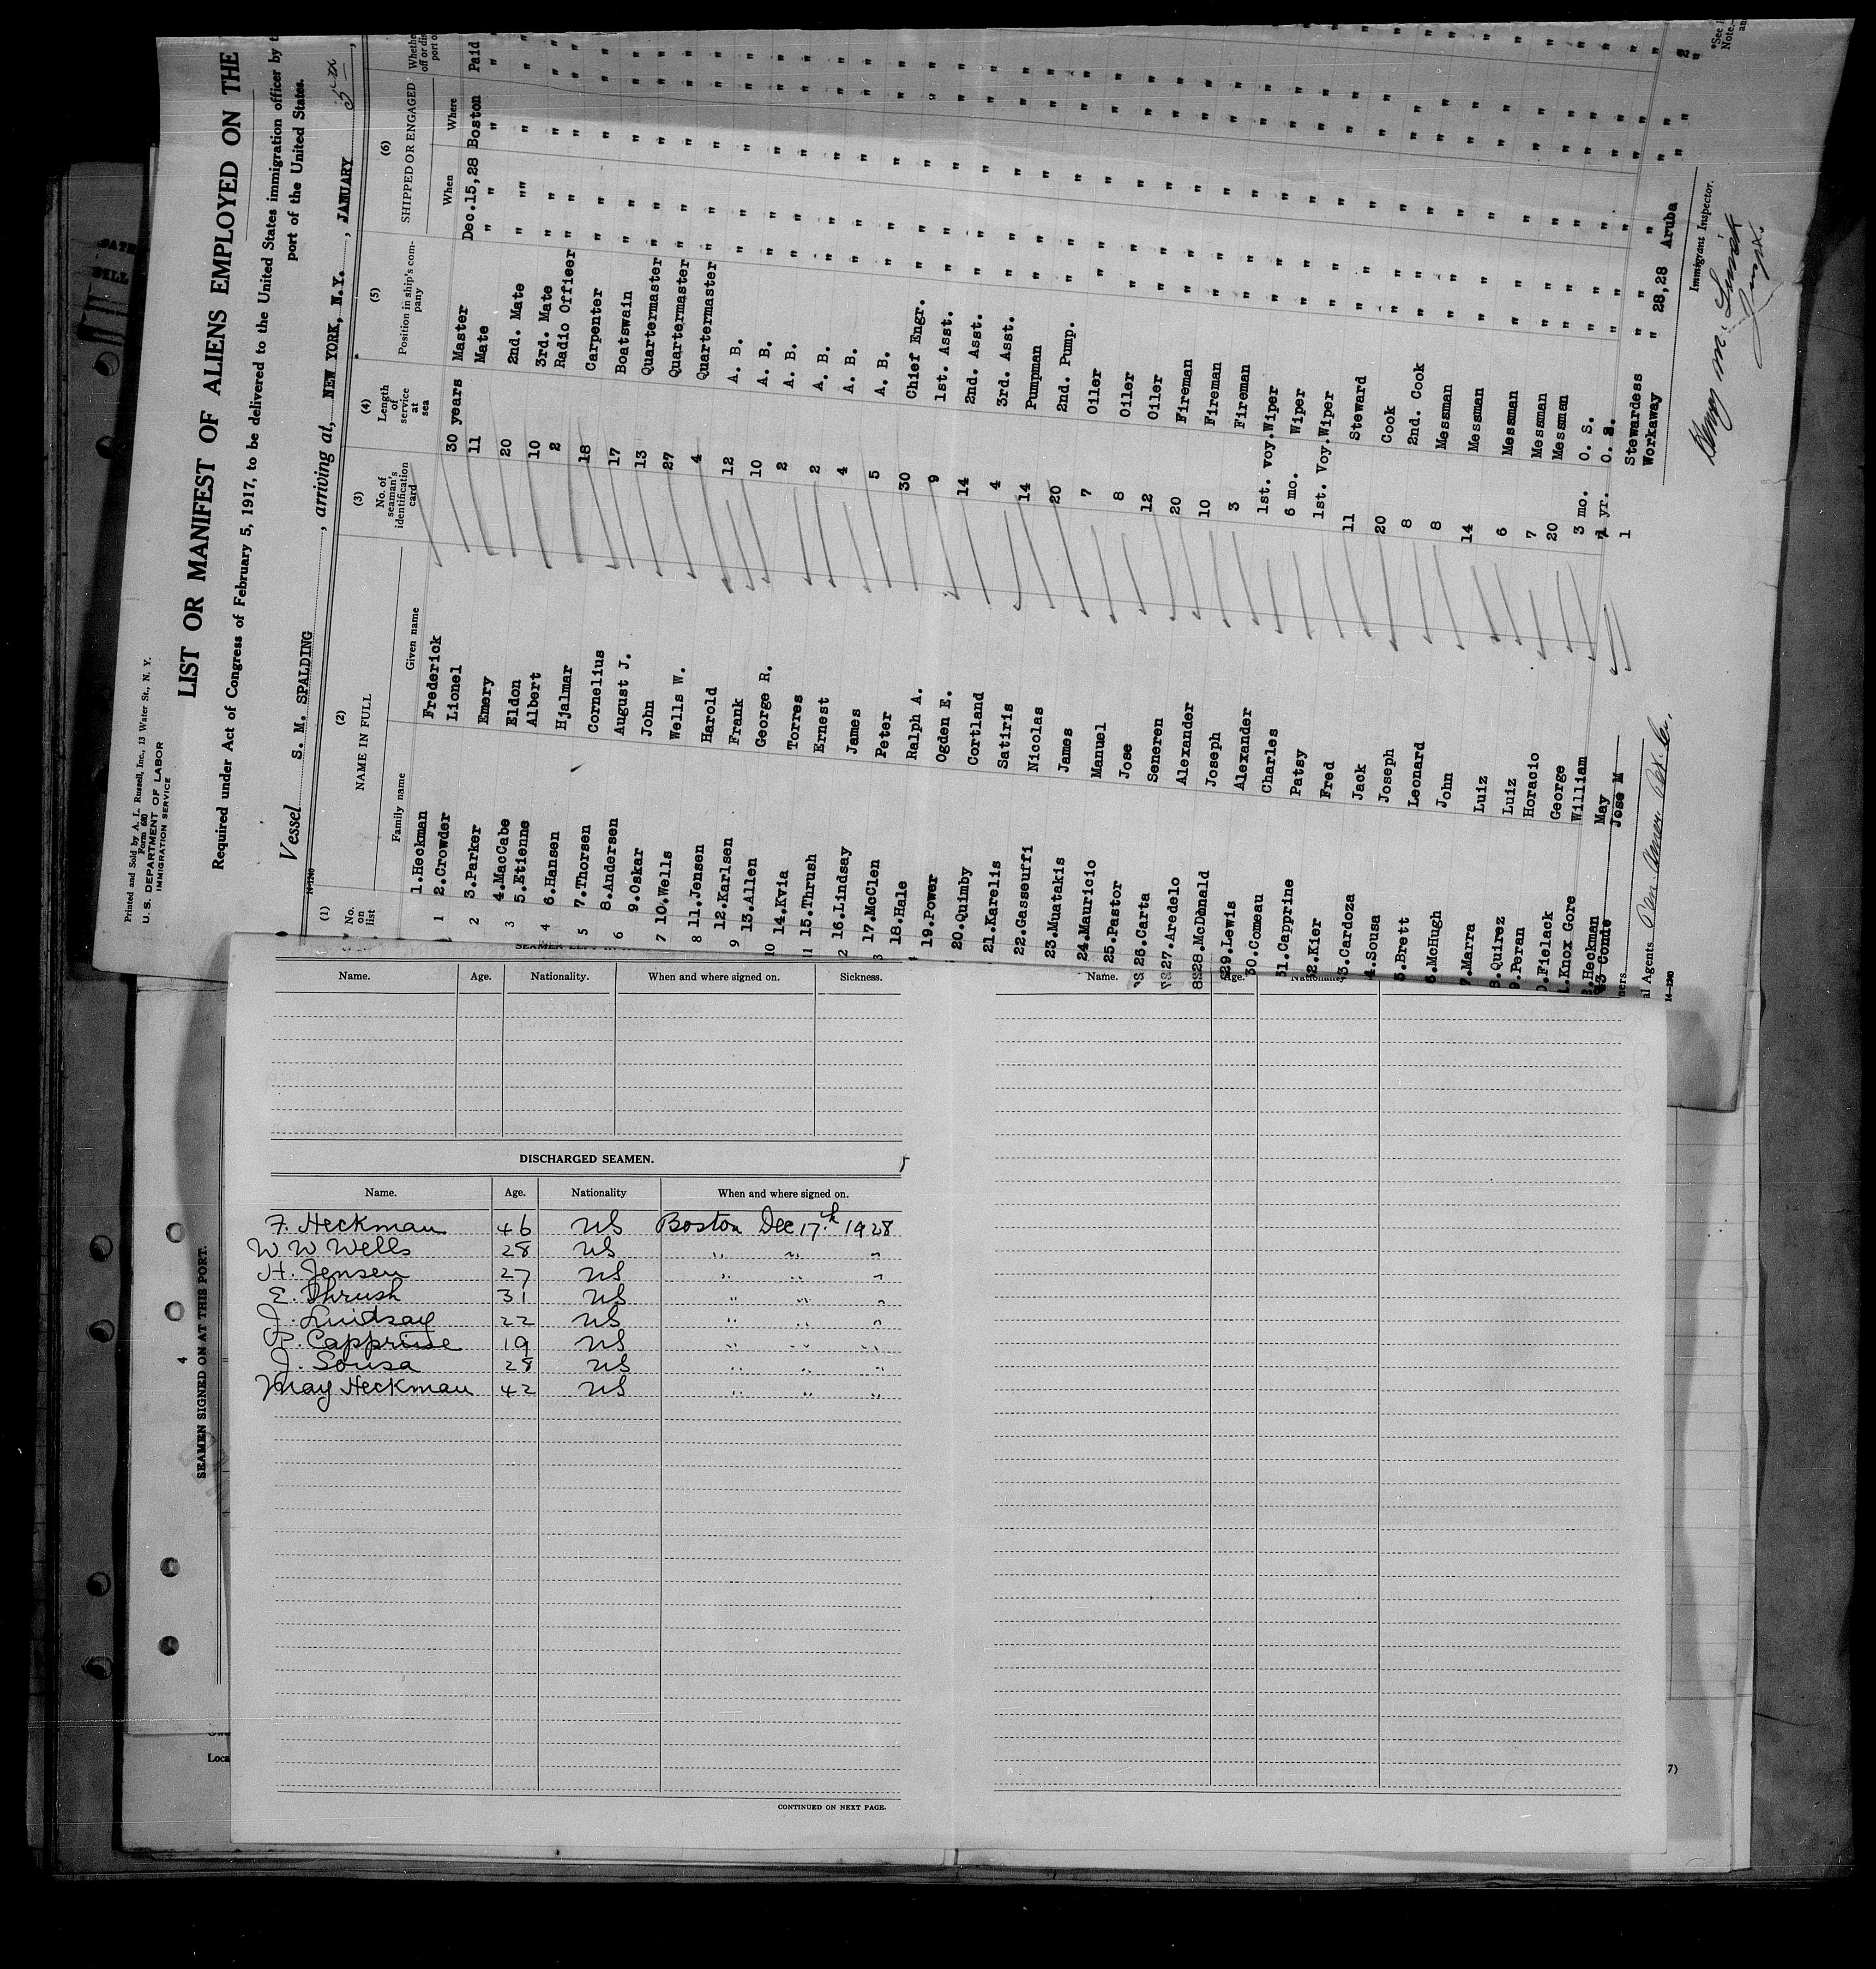 Printed and Sold by A. L. Russell, Inc., 13 Water St., N. Y.
Form 680
U. S. DEPARTMENT OF LABOR
IMMIGRATION SERVICE
LIST OR MANIFEST OF ALIENS EMPLOYED ON THE
Required under Act of Congress of February 5, 1917, to be delivered to the United States immigration officer by
port of the United States.
Vessel S. M. SPALDING, arriving at, NEW YORK, N.Y., JANUARY 5th,
(1) (2) (3) (4) (5) (6)
No. on list NAME IN FULL No. of seaman's identification card Length of service at sea Position in ship's company SHIPPED OR ENGAGED
Family name Given name When Where
1 1.Heckman Frederick 30 years Master Dec.15,28 Boston Paid
2.Crowder Lionel 11 Mate " " "
2 3.Parker Emery 20 2nd. Mate " "" " "
3 4.MacCabe Eldon 10 3rd. Mate " " " "
5.Etienne Albert 2 Radio Officer " " " "
4 6.Hansen Hjalmar 18 Carpenter " " " "
5 7.Thorsen Cornelius 17 Boatswain " " " "
6 8.Andersen August J. 13 Quartermaster " " " "
9.Oskar John 27 Quartermaster " " " "
7 10.Wells Wells W. 4 Quartermaster " " " "
8 11.Jensen Harold 12 A. B. " " " "
9 12.Karlsen Frank 10 A. B. " " " "
13.Allen George R. 2 A. B. " " " "
10 14.Kvia Torres 2 A. B. " " " "
11 15.Thrush Ernest 4 A. B. " " " "
2 16.Lindsay James 5 A. B. " " " "
3 17.McClen Peter 30 Chief Engr. " " " "
18.Hale Ralph A. 9 1st. Asst. " " " "
19.Power Ogden E. 14 2nd. Asst. " " " "
20.Quimby Cortland 4 3rd. Asst. " " " "
21.Karelis Satiris 14 Pumpman " " " "
22.Gasseuffi Nicolas 20 2nd. Pump. " " " "
23.Muatakis James 7 Oiler " " " "
24.Mauricio Manuel 8 Oiler " " " "
25.Pastor Jose 12 Oiler " " " "
26.Carta Seneren 20 Fireman " " " "
27.Aredelo Alexander 10 Fireman " " " "
28.McDonald Joseph 3 Fireman " " " "
29.Lewis Alexander 1st. voy. Wiper " " " "
30.Comeau Charles 6 mo. Wiper " " " "
31.Capprine Patsy 1st. Voy. Wiper " " " "
2.Kier Fred 11 Steward " " " "
3.Cardoza Jack 20 Cook " " " "
4.Sousa Joseph 8 2nd. Cook " " " "
5.Brett Leonard 8 Messman " " " "
6.McHugh John 14 Messman " " " "
7.Marra Luiz 6 Messman " " " "
8.Quirez Luiz 7 Messman " " " "
9.Peran Horacio 20 Messman " " " "
0.Fielack George 3 mo. O. S. " " " "
1.Knox Gore William 1 yr. O. S. " " " "
2.Heckman May 1 Stewardess " " " "
43 Conde Jose M Workaway " 28,28 Aruba "
Immigrant Inspector.
al Agents. Pan Amer. Pet. Co.
14-1240
Name. Age. Nationality. When and where signed on. Sickness.
Name. Age. Nationality.
DISCHARGED SEAMEN.
Name. Age. Nationality When and where signed on.
F. Heckman 46 US Boston Dec 17th 1928
W W Wells 28 US " " "
H. Jensen 27 US " " "
E. Thrush 31 US " " "
J. Lindsay 22 US " " "
P. Capprine 19 US " " "
J. Sousa 28 US " " "
May Heckman 42 US " " "
CONTINUED ON NEXT PAGE.
4
SEAMEN SIGNED ON AT THIS PORT.
Loca
7)